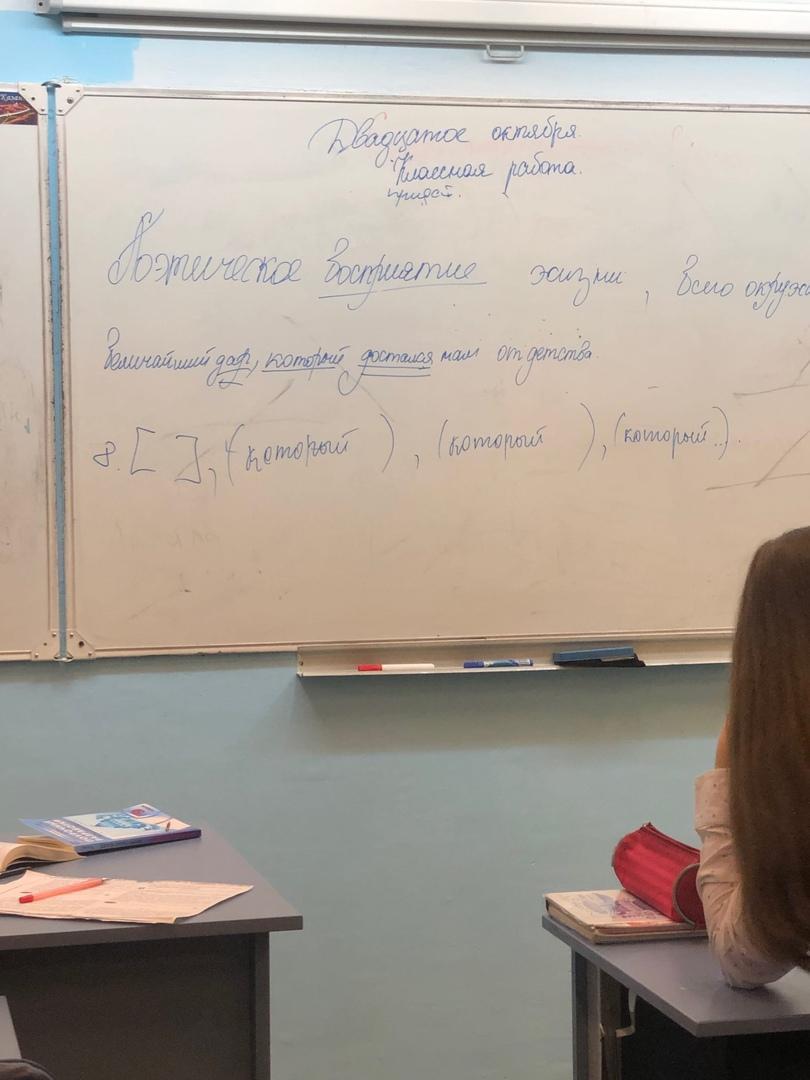 Двадцатое октября.
Классная работа.
Поэтическое восприятие жизни, всего окружа
Величайший дар, который достался нам от детства.
8. [ ], (который ), (который ), (который..).